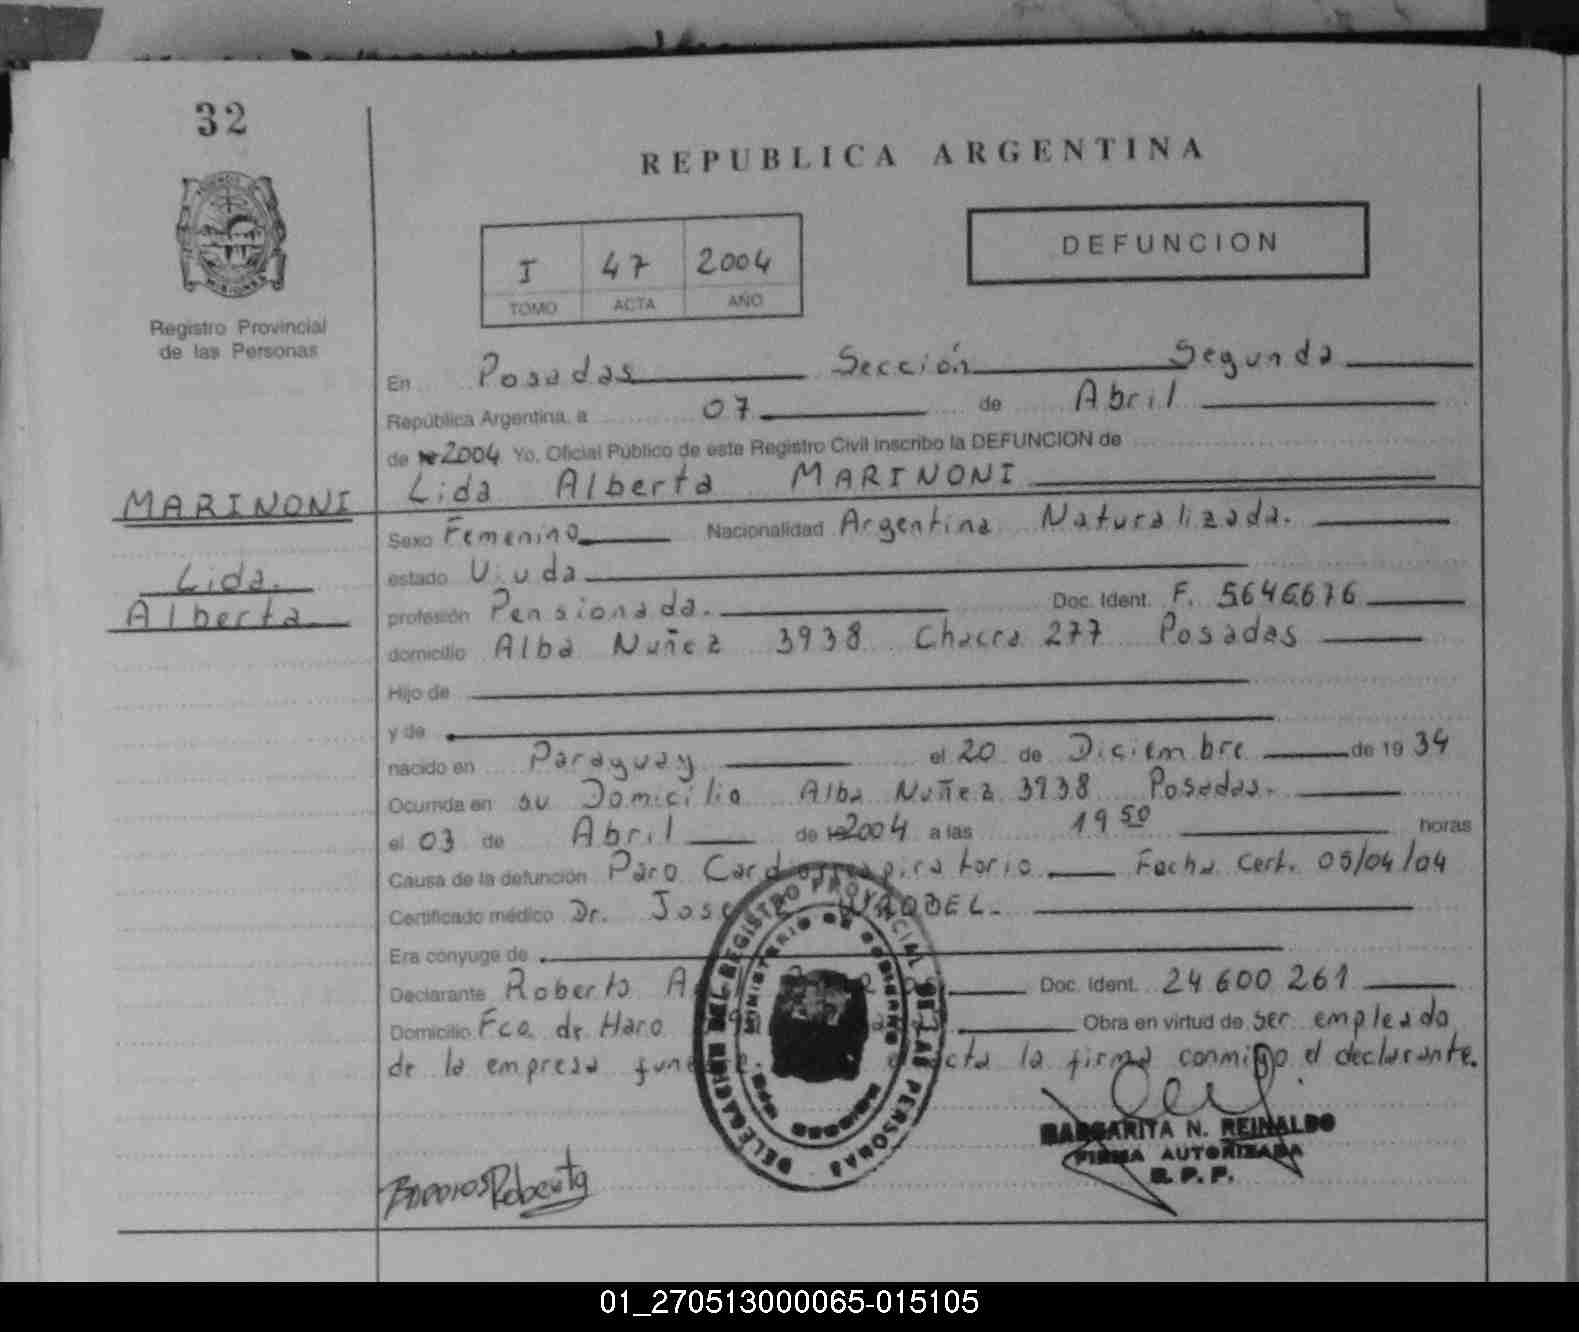 32
REPUBLICA ARGENTINA
I 47 2004
TOMO ACTA AÑO
DEFUNCION
Registro Provincial
de las Personas
En Posadas Sección Segunda
República Argentina, a 07 de Abril
de 2004 Yo, Oficial Público de este Registro Civil inscribo la DEFUNCION de
MARINONI
Lida Alberta MARINONI
Sexo Femenino Nacionalidad Argentina Naturalizada.
Lida
estado Viuda
Alberta
profesión Pensionada. Doc. Ident. F. 5646676
domicilio Alba Nuñez 3938 Chacra 277 Posadas
Hijo de
y de
nacido en Paraguay el 20 de Diciembre de 19 34
Ocurrida en su Domicilio Alba Nuñez 3938 Posadas.
el 03 de Abril de 2004 a las 19 50 horas
Causa de la defunción Paro Cardiorrespiratorio Fecha Cert. 05/04/04
Certificado médico Dr. Jose
Era conyuge de
Declarante Roberto Doc. Ident. 24.600.261
Domicilio Fco. de Haro Obra en virtud de ser empleado
de la empresa la firma conmigo el declarante.
DELEGACION DEL REGISTRO PROVINCIAL DE LAS PERSONAS
MINISTERIO DE GOBIERNO
MARGARITA N. REINALDO
FIRMA AUTORIZADA
R. P. P.
Roberto
01_270513000065-015105